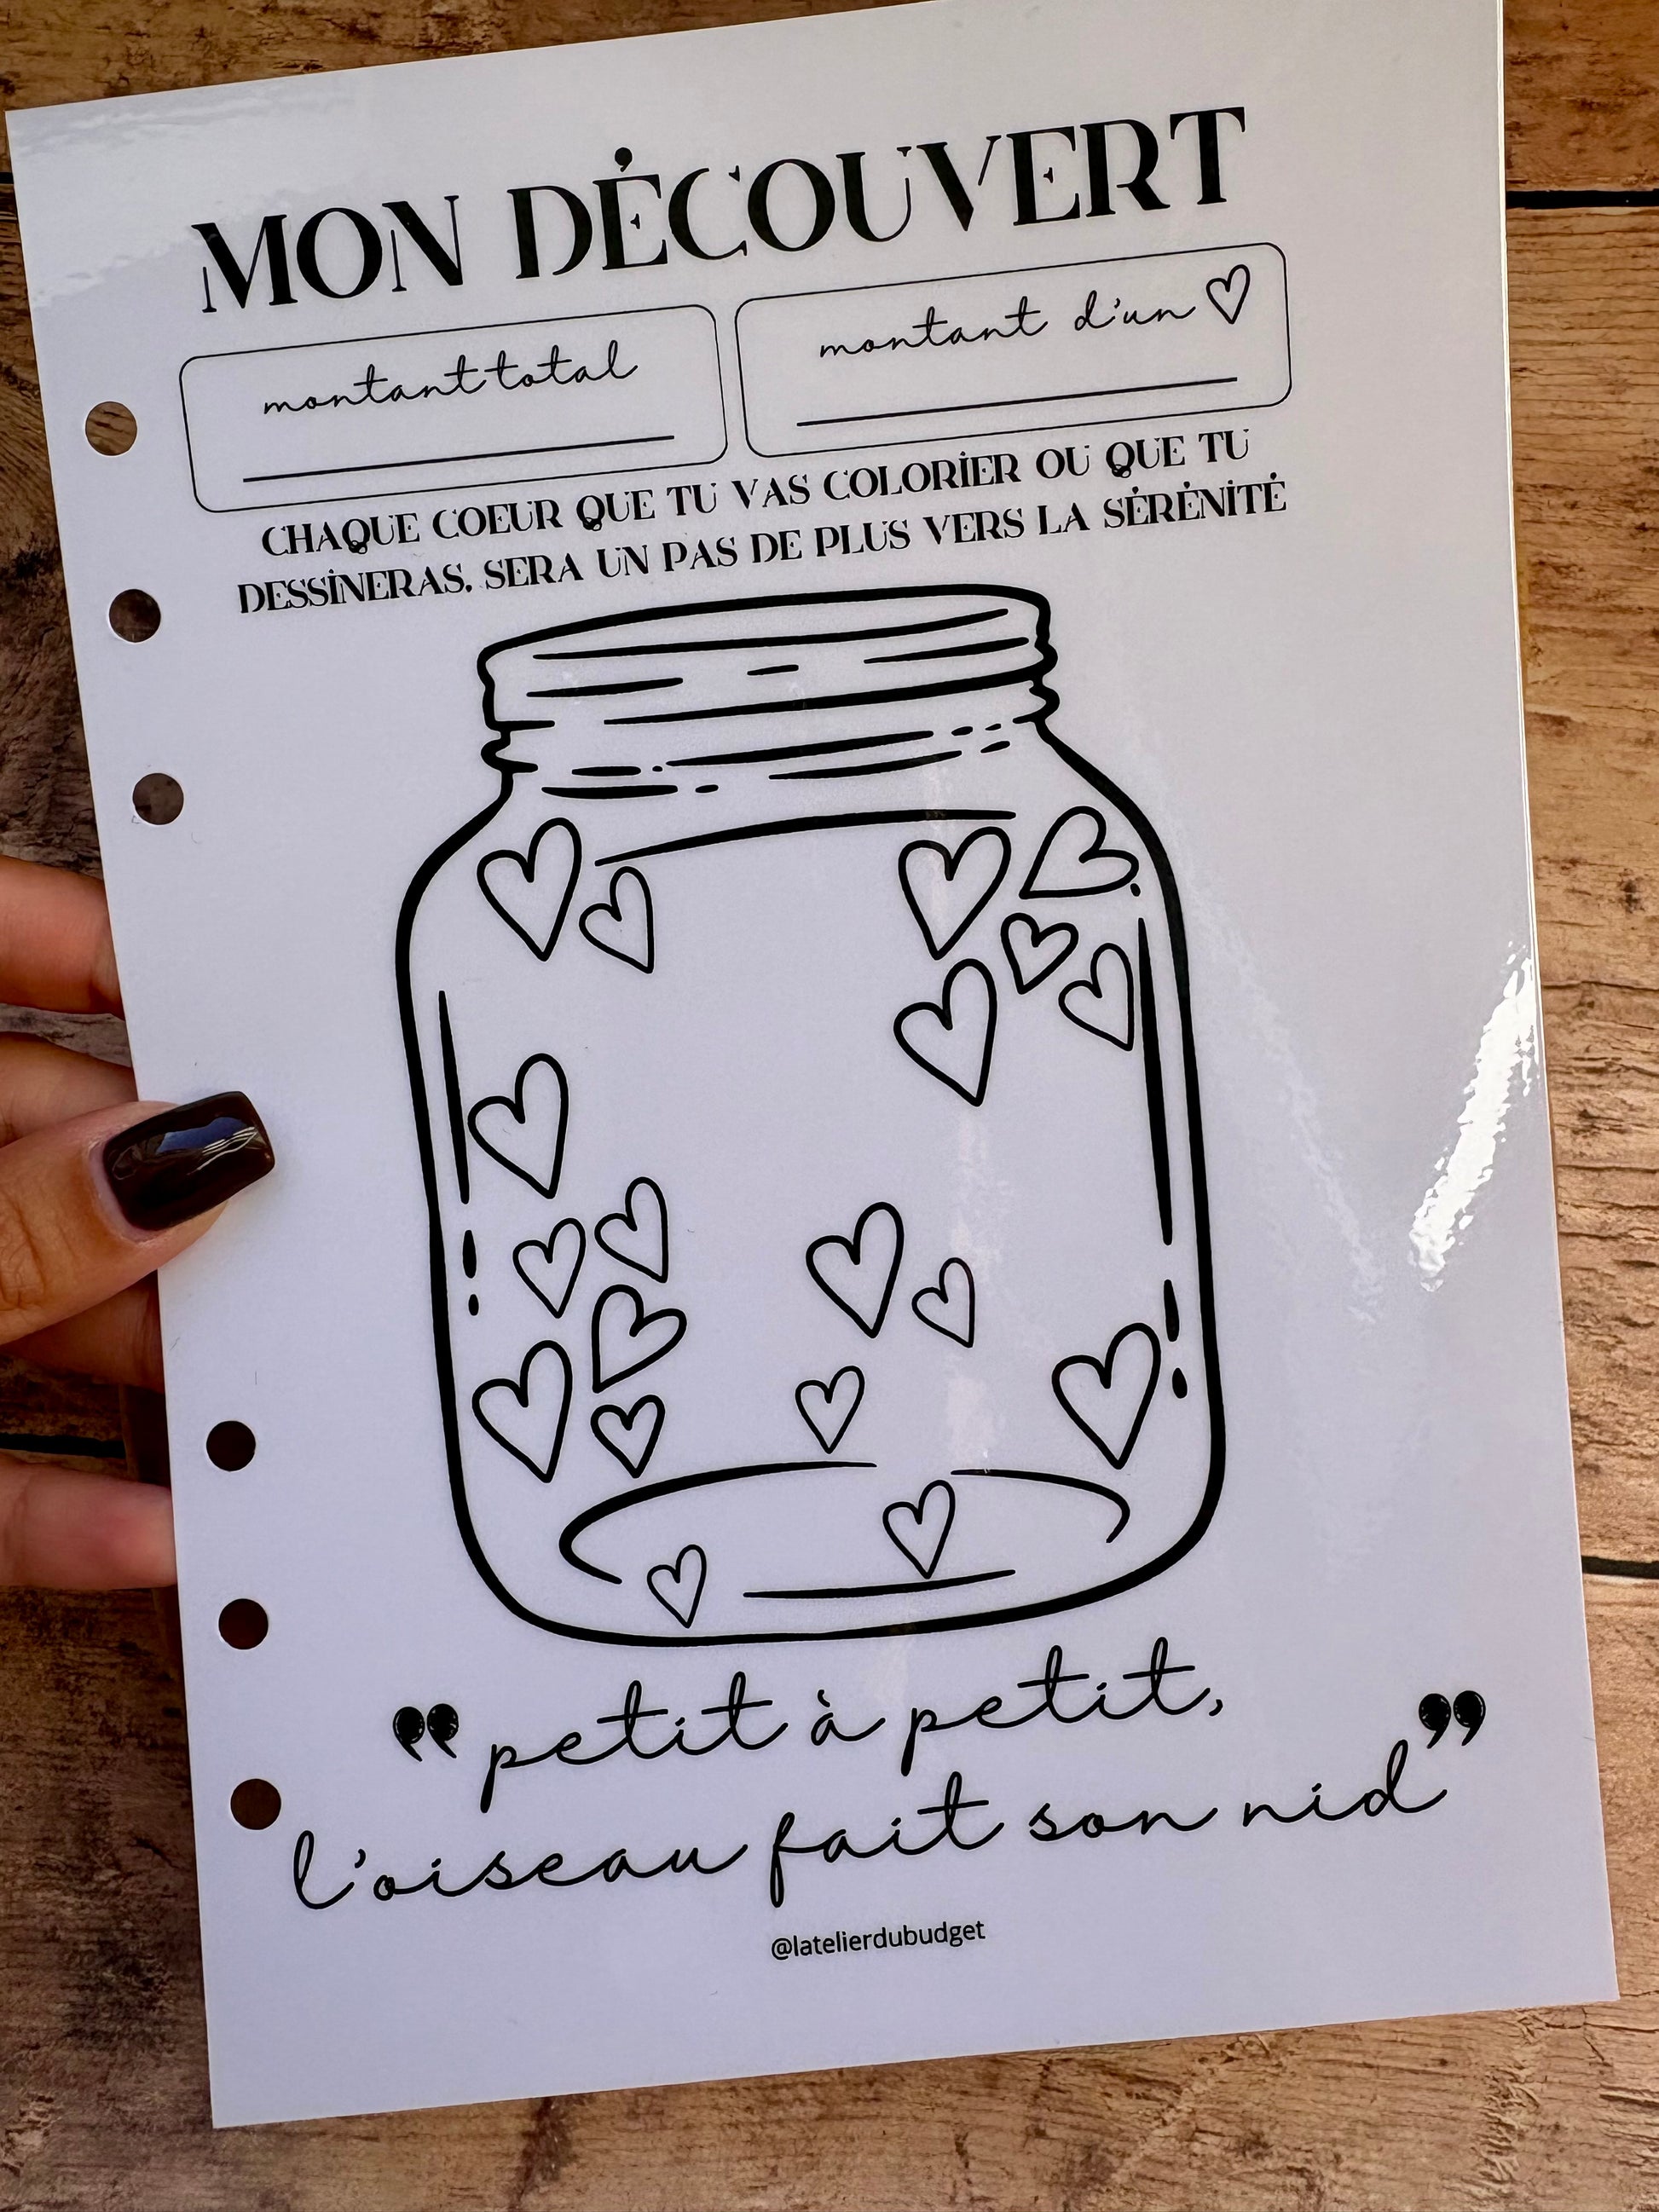 MON DÉCOUVERT
montant total
montant d'un
CHAQUE COEUR QUE TU VAS COLORIER OU QUE TU
DESSINERAS, SERA UN PAS DE PLUS VERS LA SÉRÉNITÉ
❝petit à petit,
l'oiseau fait son nid❞
@latelierdubudget